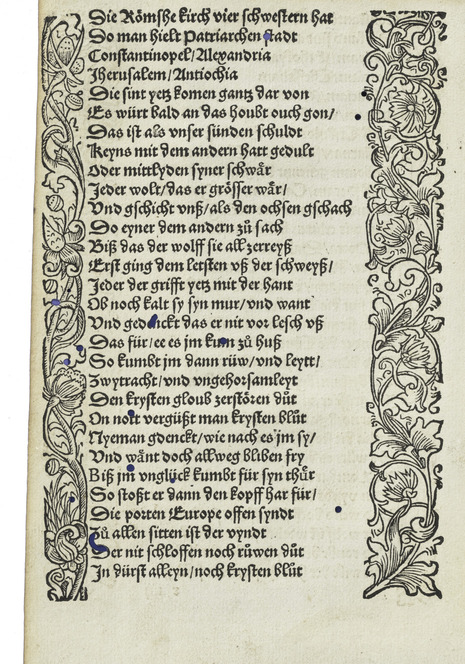 Die Römshe kirch vier schwestern hat
Do man hielt Patriarchen stadt
Constantinopel/Alexandria
Jherusalem/Antiochia
Die sint yetz komen gantz dar von
Es würt bald an das houbt ouch gon/
Das ist als vnser sünden schuldt
Keyns mit dem andern hatt gedult
Oder mittlyden syner schwår
Jeder wolt/das er grösser wår/
Vnd gschicht vnß/als den ochsen gschach
Do eyner dem andern zů sach
Biß das der wolff sie all zerreyß
Erst ging dem letsten vß der schweyß/
Jeder der grifft yetz mit der hant
Ob noch kalt sy syn mur/vnd want
Vnd gedenckt das er nit vor lesch vß
Das für/ee es jm kum zů huß
So kumbt jm dann rüw/vnd leytt/
Zwytracht/vnd vngehorsamleyt
Den krysten gloub zerstören důt
On nott vergüßt man krysten blůt
Nyeman gdenckt/wie nach es jm sy/
Vnd wånt doch allweg bliben fry
Biß jm vnglück kumbt für syn thůr
So stoßt er dann den kopff har für/
Die porten Europe offen syndt
Zů allen sitten ist der vyndt
Der nit schloffen noch rüwen důt
In dürst alleyn/noch krysten blůt